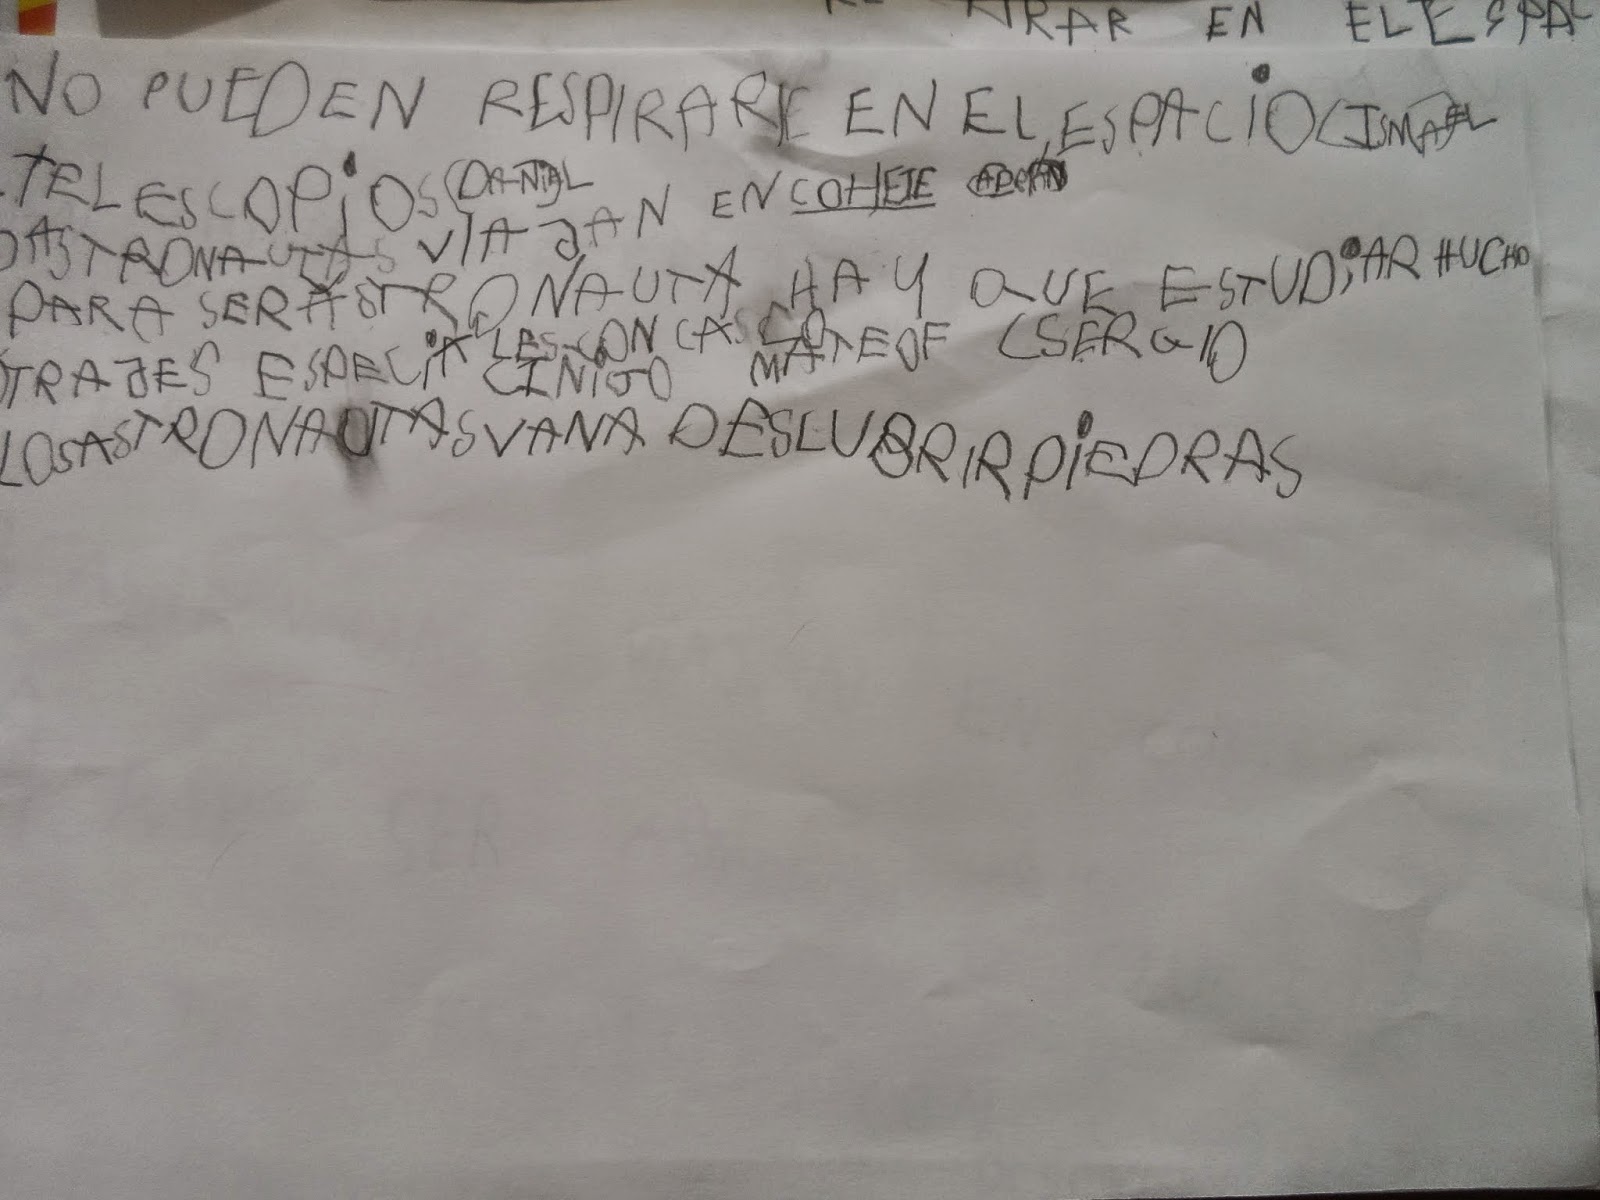 RAR EN EL ESPA
NO PUEDEN RESPIRAR EN EL ESPACIO (ISMAEL
TELESCOPIOS (DANIEL
ASTRONAUTAS VIAJAN EN COHETE ADRIÁN
PARA SER ASTRONAUTA HAY QUE ESTUDIAR MUCHO
TRAJES ESPECIALES CON CASCO (SERGIO
(INIGO MATEO F
LOS ASTRONAUTAS VAN A DESCUBRIR PIEDRAS